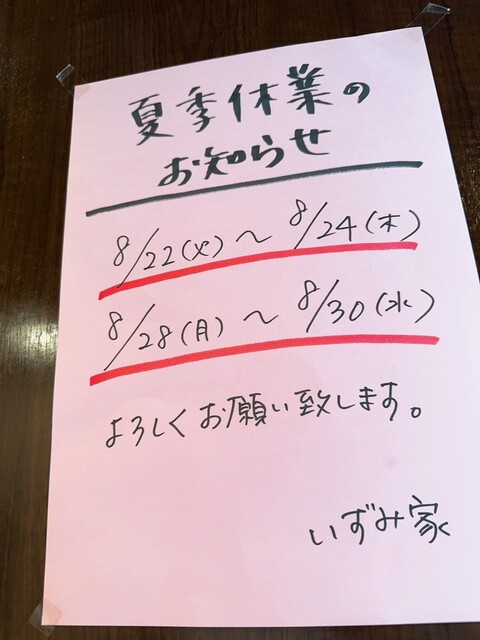 夏季休業の
お知らせ
8/22(火)〜8/24(木)
8/28(月)〜8/30(水)
よろしくお願い致します。
いずみ家